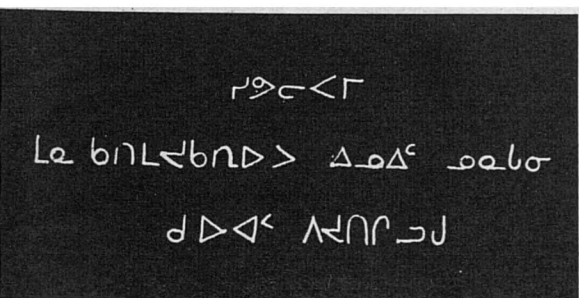 ᓯᕗᓕᐸᒥ
ᒪᓇ ᑲᑎᒪᔪᑲᑎᐅᐳ ᐃᓄᐃᑦ ᓄᓇᒐᓂ
ᑯᐅᐊᑉ ᐱᔪᑎᒋᓗᒍ